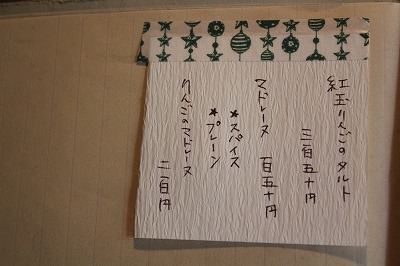 紅玉りんごのタルト
三百五十円
マドレーヌ 百五十円
*スパイス
*プレーン
りんごのマドレーヌ
二百円